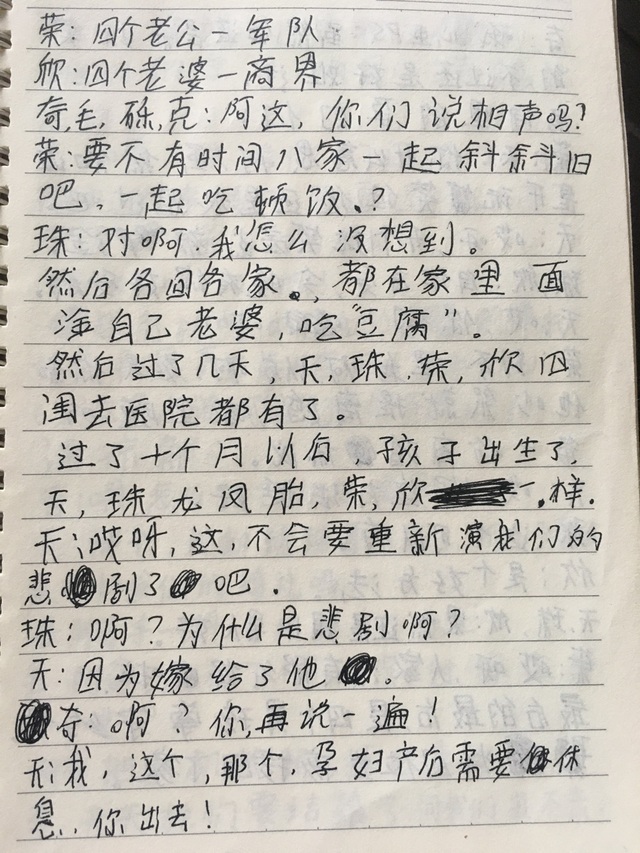 荣:四个老公一军队.
欣:四个老婆一商界
奇,毛,砾,克:阿这,你们说相声吗?
荣:要不有时间八家一起斜斜旧
吧,一起吃顿饭.?
珠:对啊.我怎么没想到。
然后各回各家。,都在家里面
自己老婆,吃"豆腐"。
然后过了几天,天,珠,荣,欣四
去医院都有了。
过了十个月以后,孩子出生了,
天,珠龙凤胎,荣,欣一样.
天:哎呀,这,不会要重新演我们的
悲剧了吧.
珠:啊?为什么是悲剧啊?
天:因为嫁给了他。
奇:啊?你,再说一遍!
天:我,这个,那个,孕妇产后需要休
息.你出去!